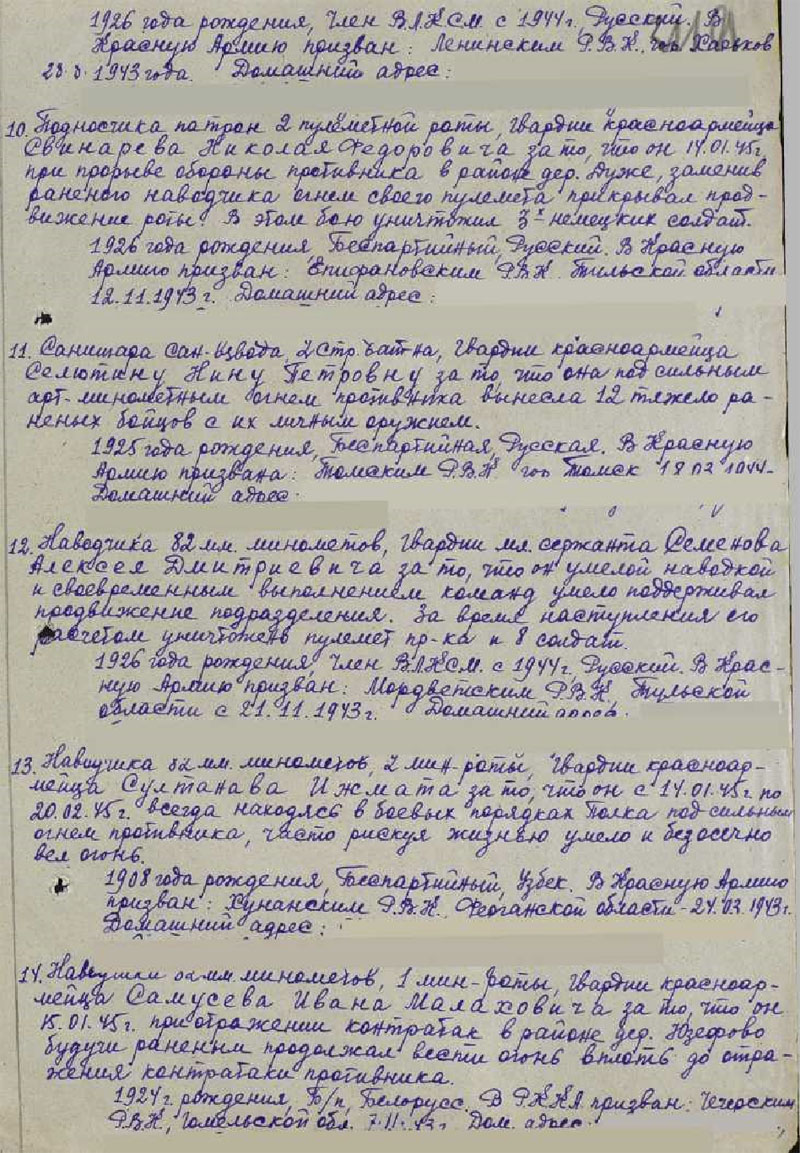 1926 года рождения, член ВЛКСМ с 1944г, Русский. В
Красную Армию призван: Ленинским Р.В.К., гор Харьков
1943 года. Домашний адрес:
10. Подносчика патрон 2 пулеметной роты, гвардии красноармейца
Свинарева Николая Федоровича за то, что он 14.01.45г
при прорыве обороны противника в районе дер. заменив
раненого наводчика огнем своего пулемета прикрывал прод-
вижение роты. В этом бою уничтожил 3х немецких солдат.
1926 года рождения, Беспартийный, Русский. В Красную
Армию призван: Епифановским Р.В.К Тульской области
12.11.1943г. Домашний адрес:
11. Санитара сан-взвода, 2 стр. бат-на, гвардии красноармейца
Селютину Нину Петровну за то, что она под сильным
арт-минометным огнем противника вынесла 12 тяжело ра-
неных бойцов с их личным оружием.
1925 года рождения, Беспартийная, Русская. В Красную
Армию призвана: Томским Р.В.К гор Томск 18 02 1944-
Домашний адрес:
12. Наводчика 82 мм. минометов, гвардии мл. сержанта Семенова
Алексея Дмитриевича за то, что он умелой наводкой
и своевременным выполнением команд умело поддерживал
продвижение подразделения. За время наступления его
расчетом уничтожен пулемет пр-ка и 8 солдат.
1926 года рождения, член ВЛКСМ. с 1944г, Русский. В Крас-
ную Армию призван: Мордвесским Р.В.К, Тульской
области с 21.11.1943г. Домашний адрес.
13. Наводчика 82 мм. минометов, 2 мин-роты, гвардии красноар-
мейца Султанава Ижмата за то, что он с 14.01.45г по
20.02.45г. всегда находясь в боевых порядках Полка под сильным
огнем противника, часто рискуя жизнью умело и безосечно
вел огонь.
1908 года рождения, Беспартийный, Узбек. В Красную Армию
призван: Хунанским Р.В.К. Ферганской области - 24.03.1943г.
Домашний адрес:
14. Наводчика 82 мм. минометов, 1 мин-роты, гвардии красноар-
мейца Самусева Ивана Малаховича за то, что он
15.01.45г. при отражении контратак в районе дер. Юзефово
будучи раненым продолжал вести огонь вплоть до отра-
жения контратаки противника.
1924г. рождения, Б/п, Белорусс. В РККА призван: Чечерским
Р.В.К, Гомельской обл. 7.11.43г. Дом. адрес.